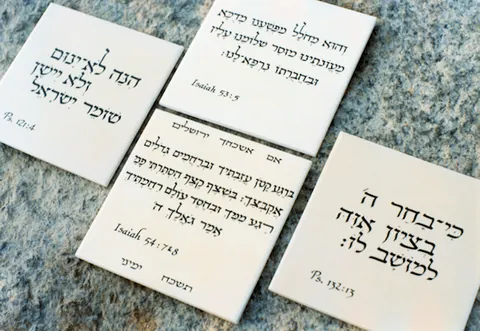 הִנֵּה לֹא־יָנוּם
וְלֹא יִישָׁן
שׁוֹמֵר יִשְׂרָאֵל
Ps. 121:4
וְהוּא מְחֹלָל מִפְּשָׁעֵנוּ מְדֻכָּא
מֵעֲוֹנֹתֵינוּ מוּסַר שְׁלוֹמֵנוּ עָלָיו
וּבַחֲבֻרָתוֹ נִרְפָּא־לָנוּ:
Isaiah 53:5
אם אשכחך ירושלים
בְּרֶגַע קָטֹן עֲזַבְתִּיךְ וּבְרַחֲמִים גְּדֹלִים
אֲקַבְּצֵךְ: בְּשֶׁצֶף קֶצֶף הִסְתַּרְתִּי פָנַי
רֶגַע מִמֵּךְ וּבְחֶסֶד עוֹלָם רִחַמְתִּיךְ
אָמַר גֹּאֲלֵךְ ה'
Isaiah 54:7&8
תשכח ימיני
כִּי־בָחַר ה'
בְּצִיּוֹן אִוָּהּ
לְמוֹשָׁב לוֹ:
Ps. 132:13